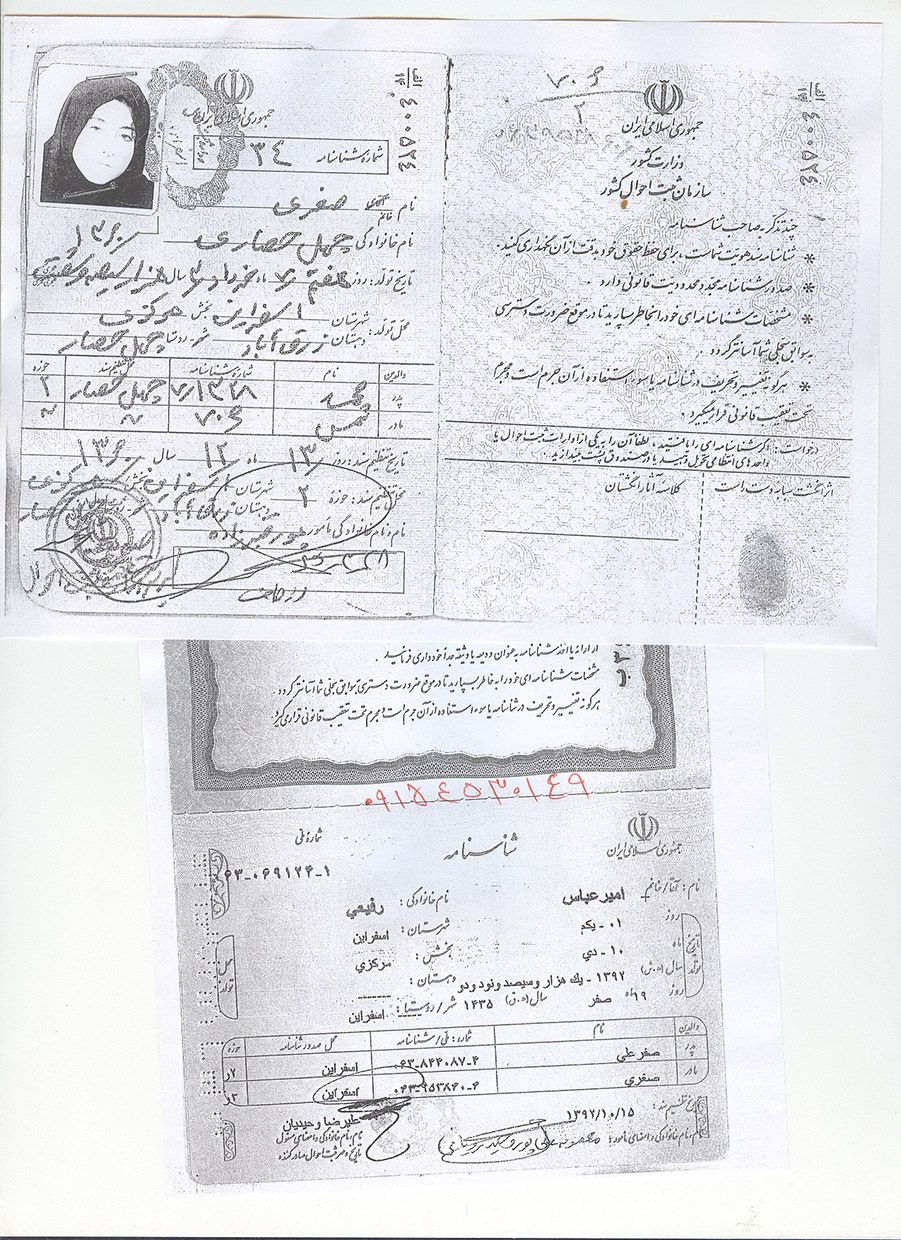 جمهوری اسلامی ایران
شماره شناسنامه ۳۴
الف
۱۴
۴۰۰۵۲۴
نام صغری
خانم
نام خانوادگی چهل حصاری
۱۳۶۰
تاریخ تولد: روز هفتم ماه خرداد سال هزار و سیصد و شصت
محل تولد: شهرستان اسفراین بخش مرکزی
دهستان زرق آباد شهر - روستا چهل حصار
والدین نام شماره شناسنامه محل تنظیم سند حوزه
پدر محمد چهل حصار ۲
مادر ۷۰۶ ~ ~
تاریخ تنظیم سند: روز ۱۳ ماه ۱۲ سال ۱۳۶۰
محل تنظیم سند: حوزه ۲ شهرستان اسفراین بخش مرکزی
دهستان
نام و نام خانوادگی مامور
۷۰۶
۲
الف
۱۴
۴۰۰۵۲۴
جمهوری اسلامی ایران
وزارت کشور
سازمان ثبت احوال کشور
چند تذکر به صاحب شناسنامه
* شناسنامه سند هویت شماست، برای حفظ حقوق خود بدقت از آن نگهداری کنید.
* صدور شناسنامه مجدد محدودیت قانونی دارد.
* مشخصات شناسنامه ای خود را بخاطر بسپارید تا در موقع ضرورت دسترسی
به سوابق سجلی شما آسانتر گردد.
* هرگونه تغییر و تحریف در شناسنامه یا سوء استفاده از آن جرم است و مجرم
تحت تعقیب قانونی قرار میگیرد.
درخواست: اگر شناسنامه ای را یافتید، لطفاً آن را به یکی از ادارات ثبت احوال یا
واحدهای انتظامی تحویل دهید یا در صندوق پست بیندازید.
اثر انگشت سبابه دست راست
کلاسه آثار انگشتان
از ارائه یا اخذ شناسنامه به عنوان ودیعه یا وثیقه جداً خودداری فرمائید.
مشخصات شناسنامه ای خود را به خاطر بسپارید تا در موقع ضرورت دسترسی به سوابق سجلی شما آسانتر گردد.
هرگونه تغییر و تحریف در شناسنامه یا سوء استفاده از آن جرم است و مجرم تحت تعقیب قانونی قرار می گیرد.
۰۹۱۵۴۵۳۰۱۴۹
جمهوری اسلامی ایران
شناسنامه
شماره ملی
۰۶۳-۰۶۹۱۲۴-۱
نام: آقا/خانم امیرعباس نام خانوادگی: رفیعي
تاریخ تولد
روز ۰۱ - یکم
ماه ۱۰ - دي
سال (ه.ش) ۱۳۹۲ - یك هزار و سیصد و نود و دو
روز ۱۹ ماه صفر سال (ه.ق) ۱۴۳۵
محل تولد
شهرستان: اسفراین
بخش: مرکزي
دهستان: -------
شهر/روستا: اسفراین
والدین نام شماره: ملی/شناسنامه محل صدور شناسنامه حوزه
پدر صفرعلی ۰۶۳-۸۴۴۰۸۷-۴ اسفراین ۷ر
مادر صغري ۰۶۳-۹۵۳۸۶۰-۶ اسفراین ۲ر
تاریخ تنظیم سند: ۱۳۹۲/۱۰/۱۵
نام و نام خانوادگی و امضای مأمور:
علیرضا وحیدیان
نام، نام خانوادگی و امضای مسئول
تاریخ و مهر ثبت احوال صادرکننده